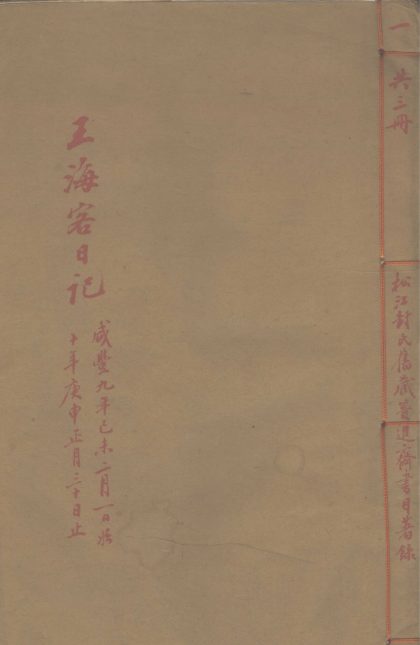 一
共三冊
松江封氏舊藏簣進齋書目著錄
王海客日記
咸豐九年己未二月一日始
十年庚申正月三十日止